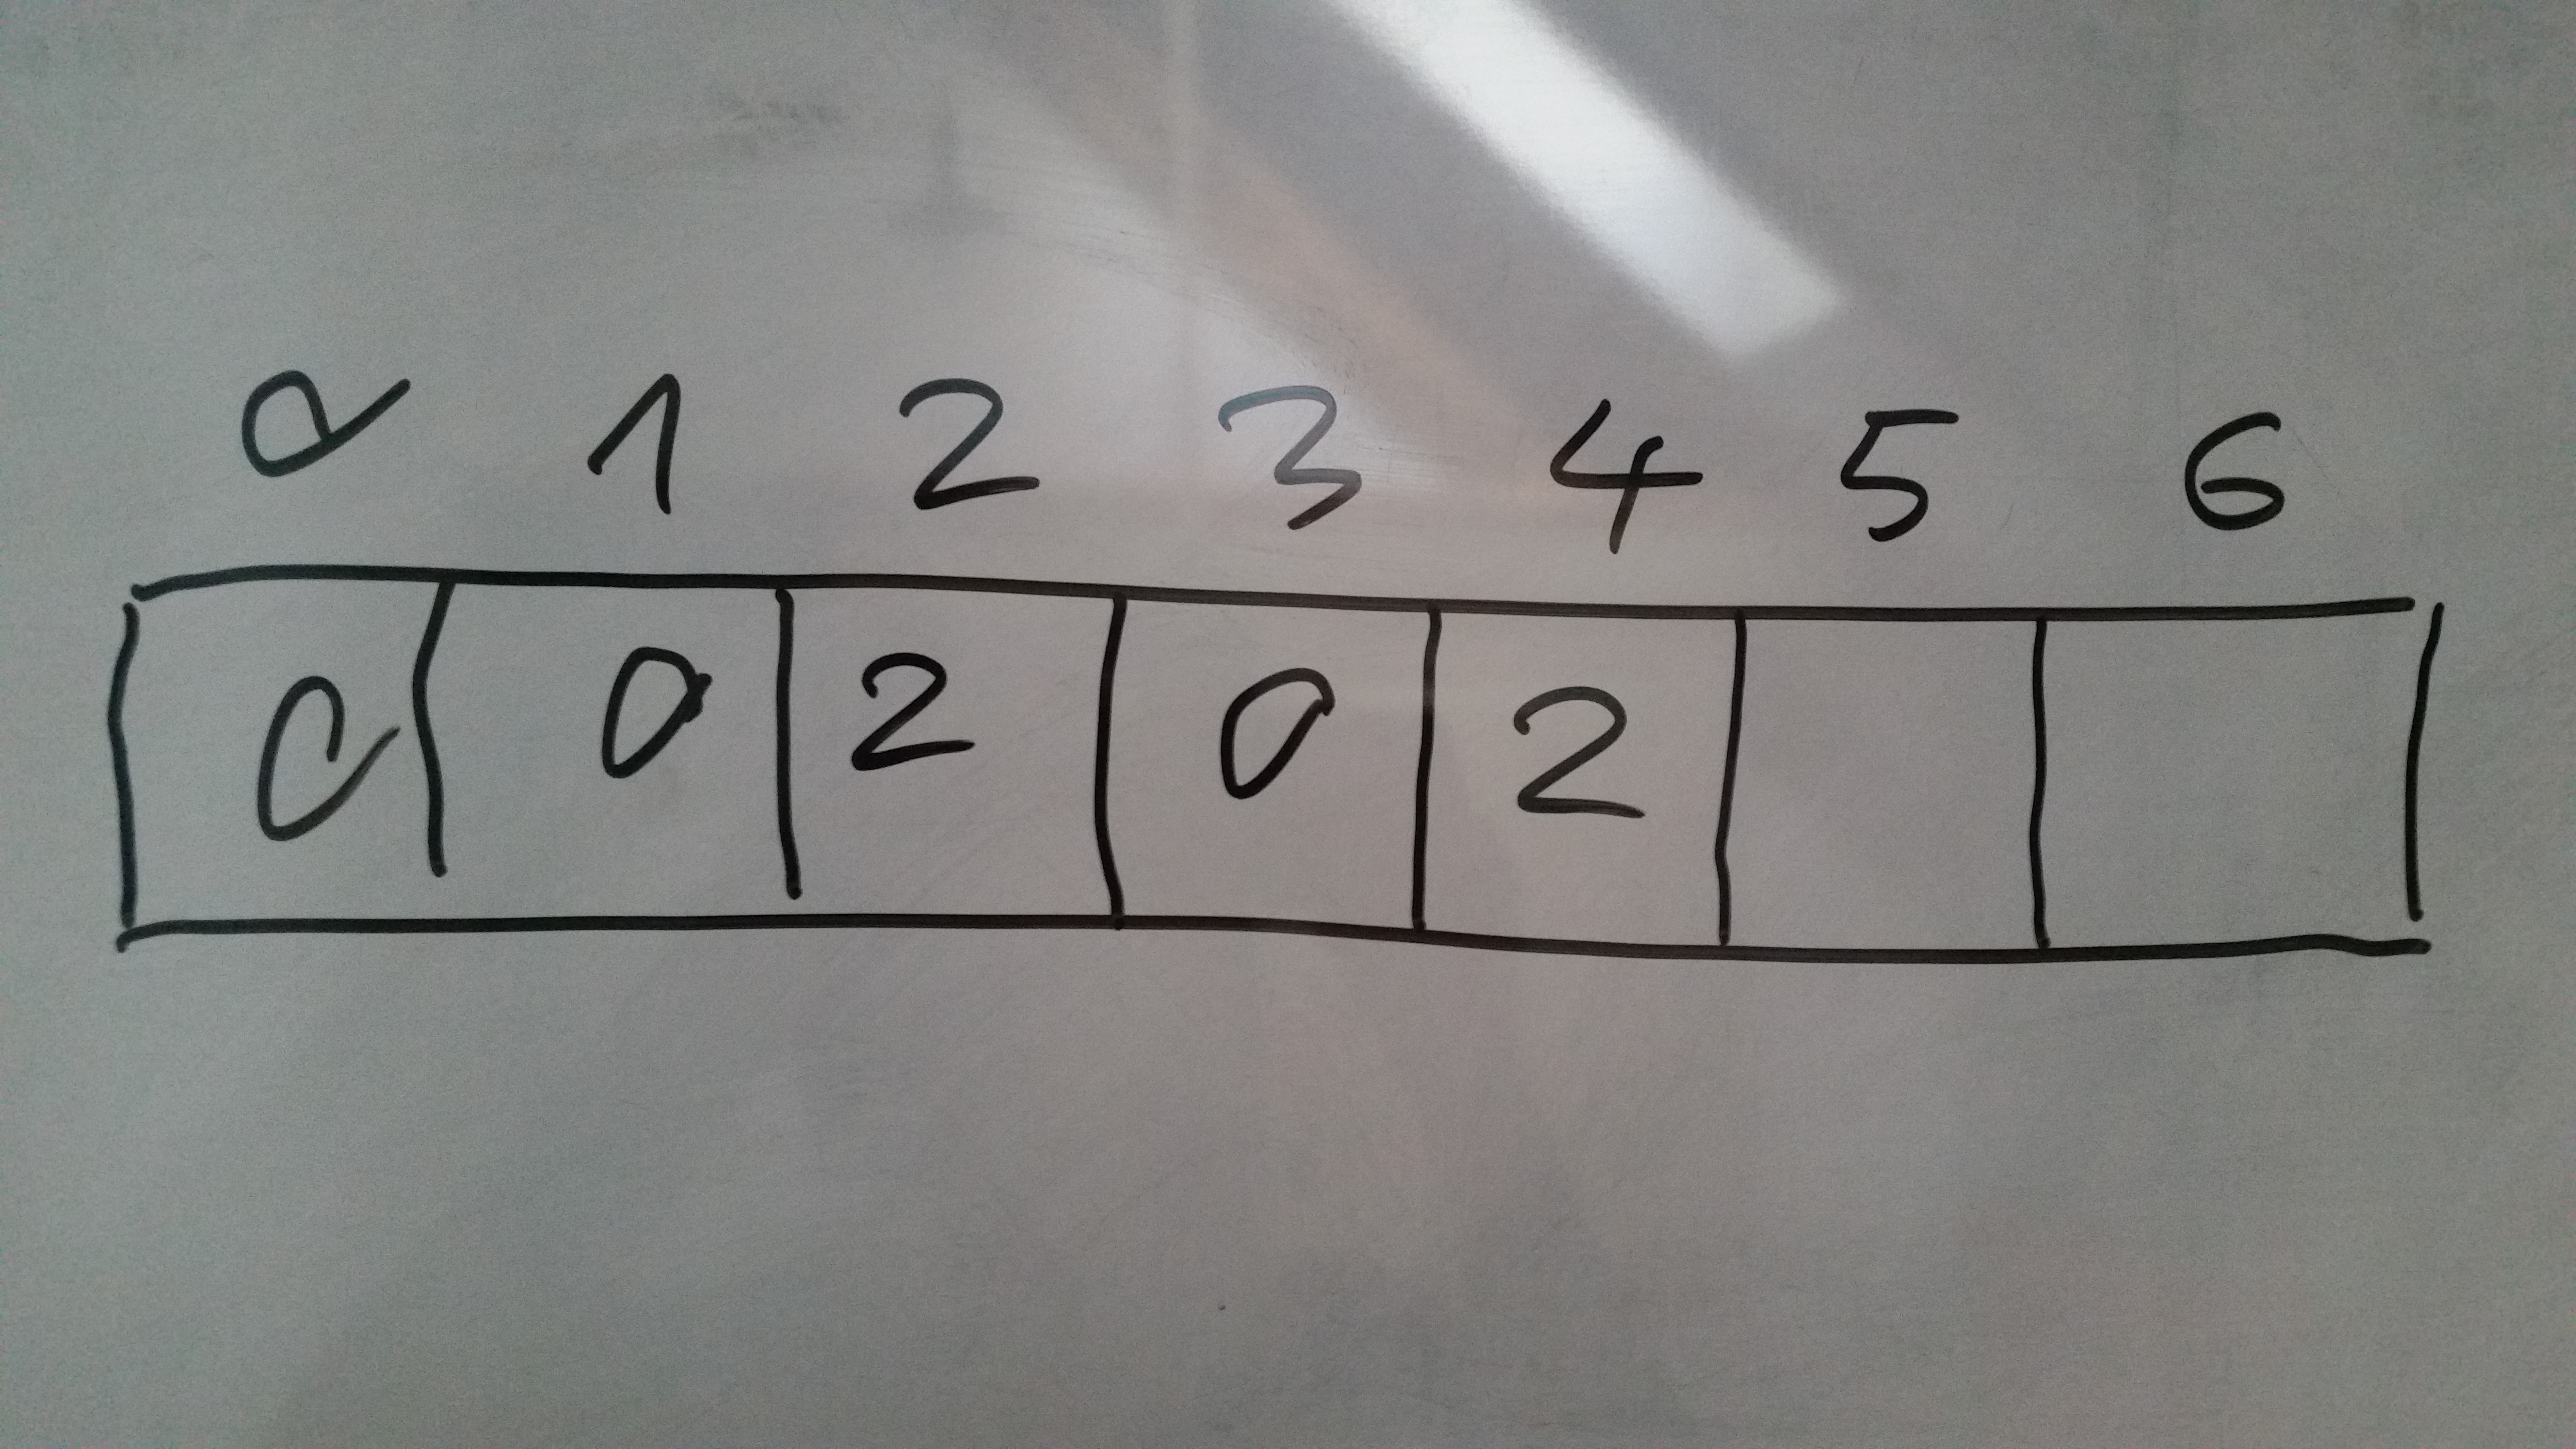 0 1 2 3 4 5 6
0 0 2 0 2